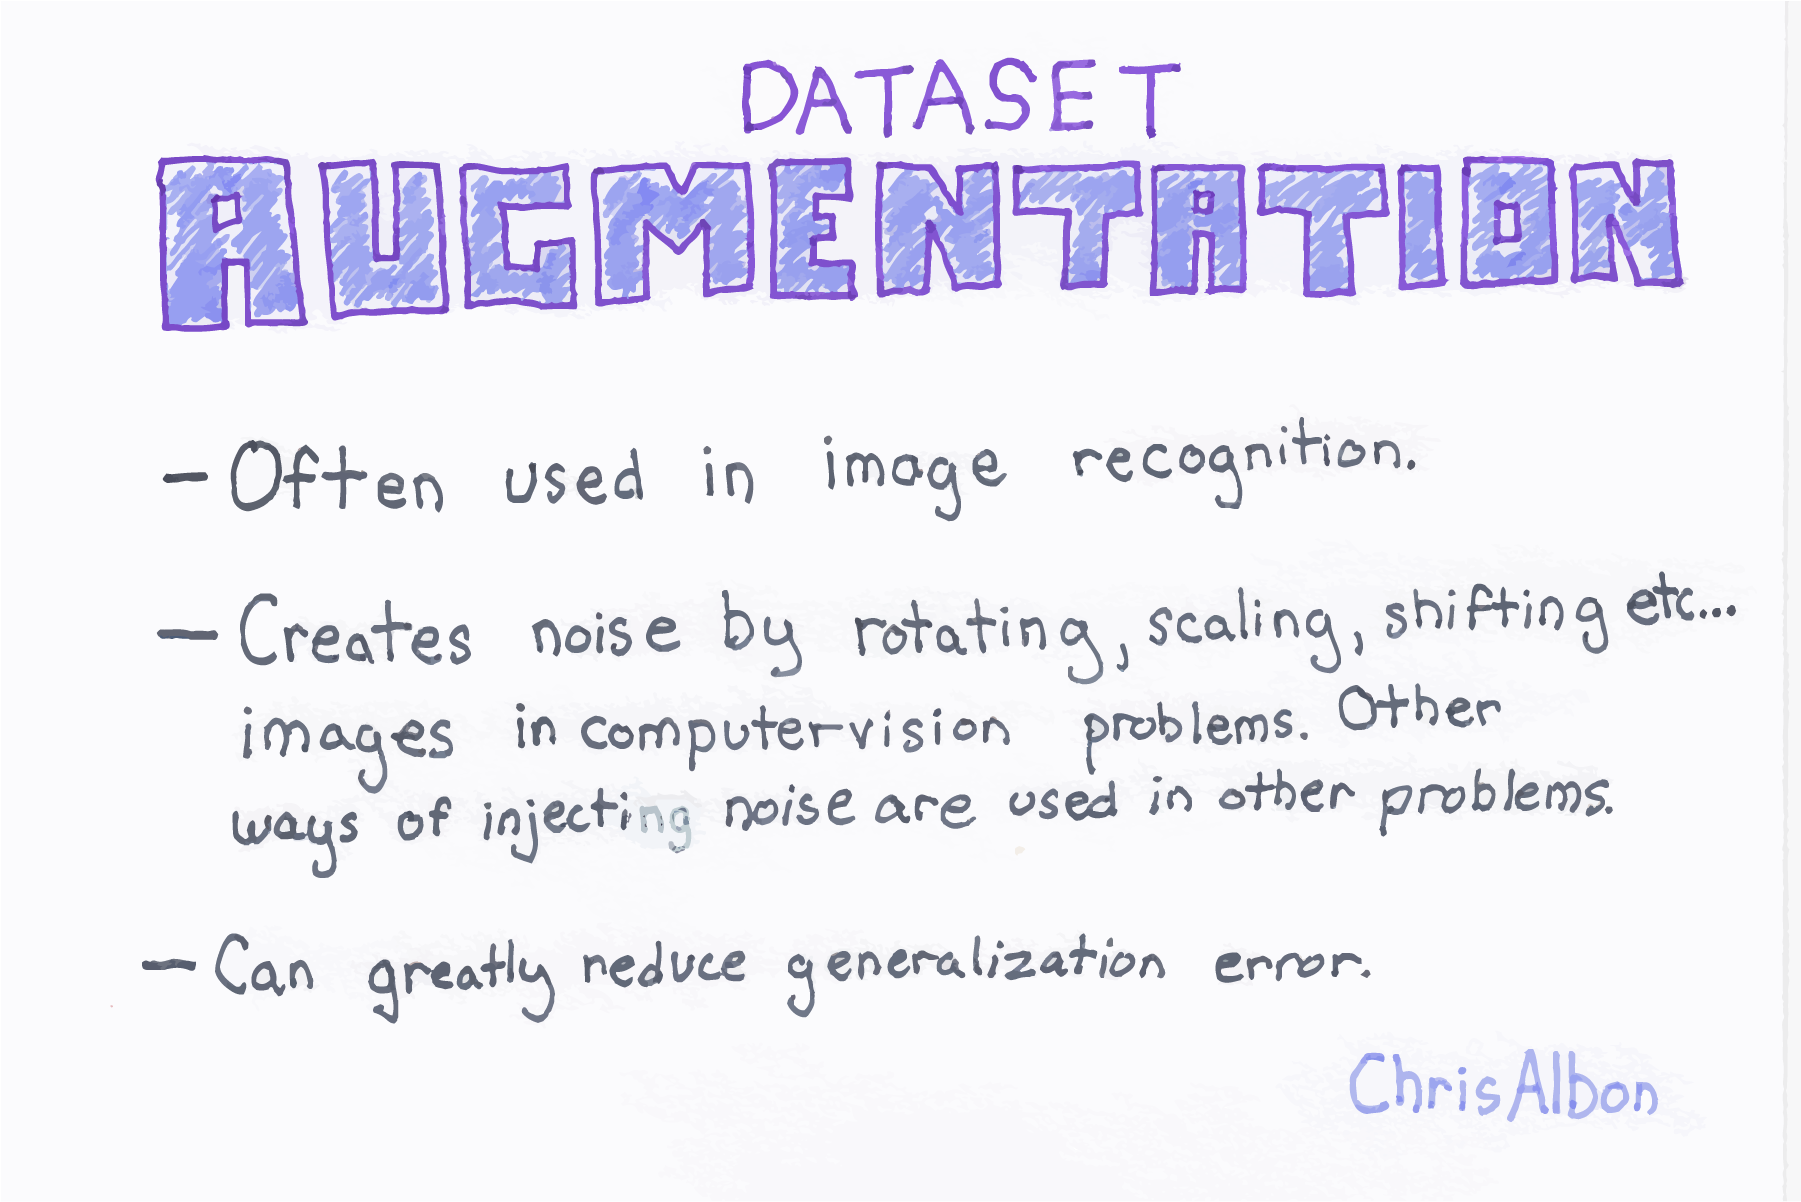 DATASET
AUGMENTATION
- Often used in image recognition.
- Creates noise by rotating, scaling, shifting etc...
images in computer-vision problems. Other
ways of injecting noise are used in other problems.
- Can greatly reduce generalization error.
Chris Albon